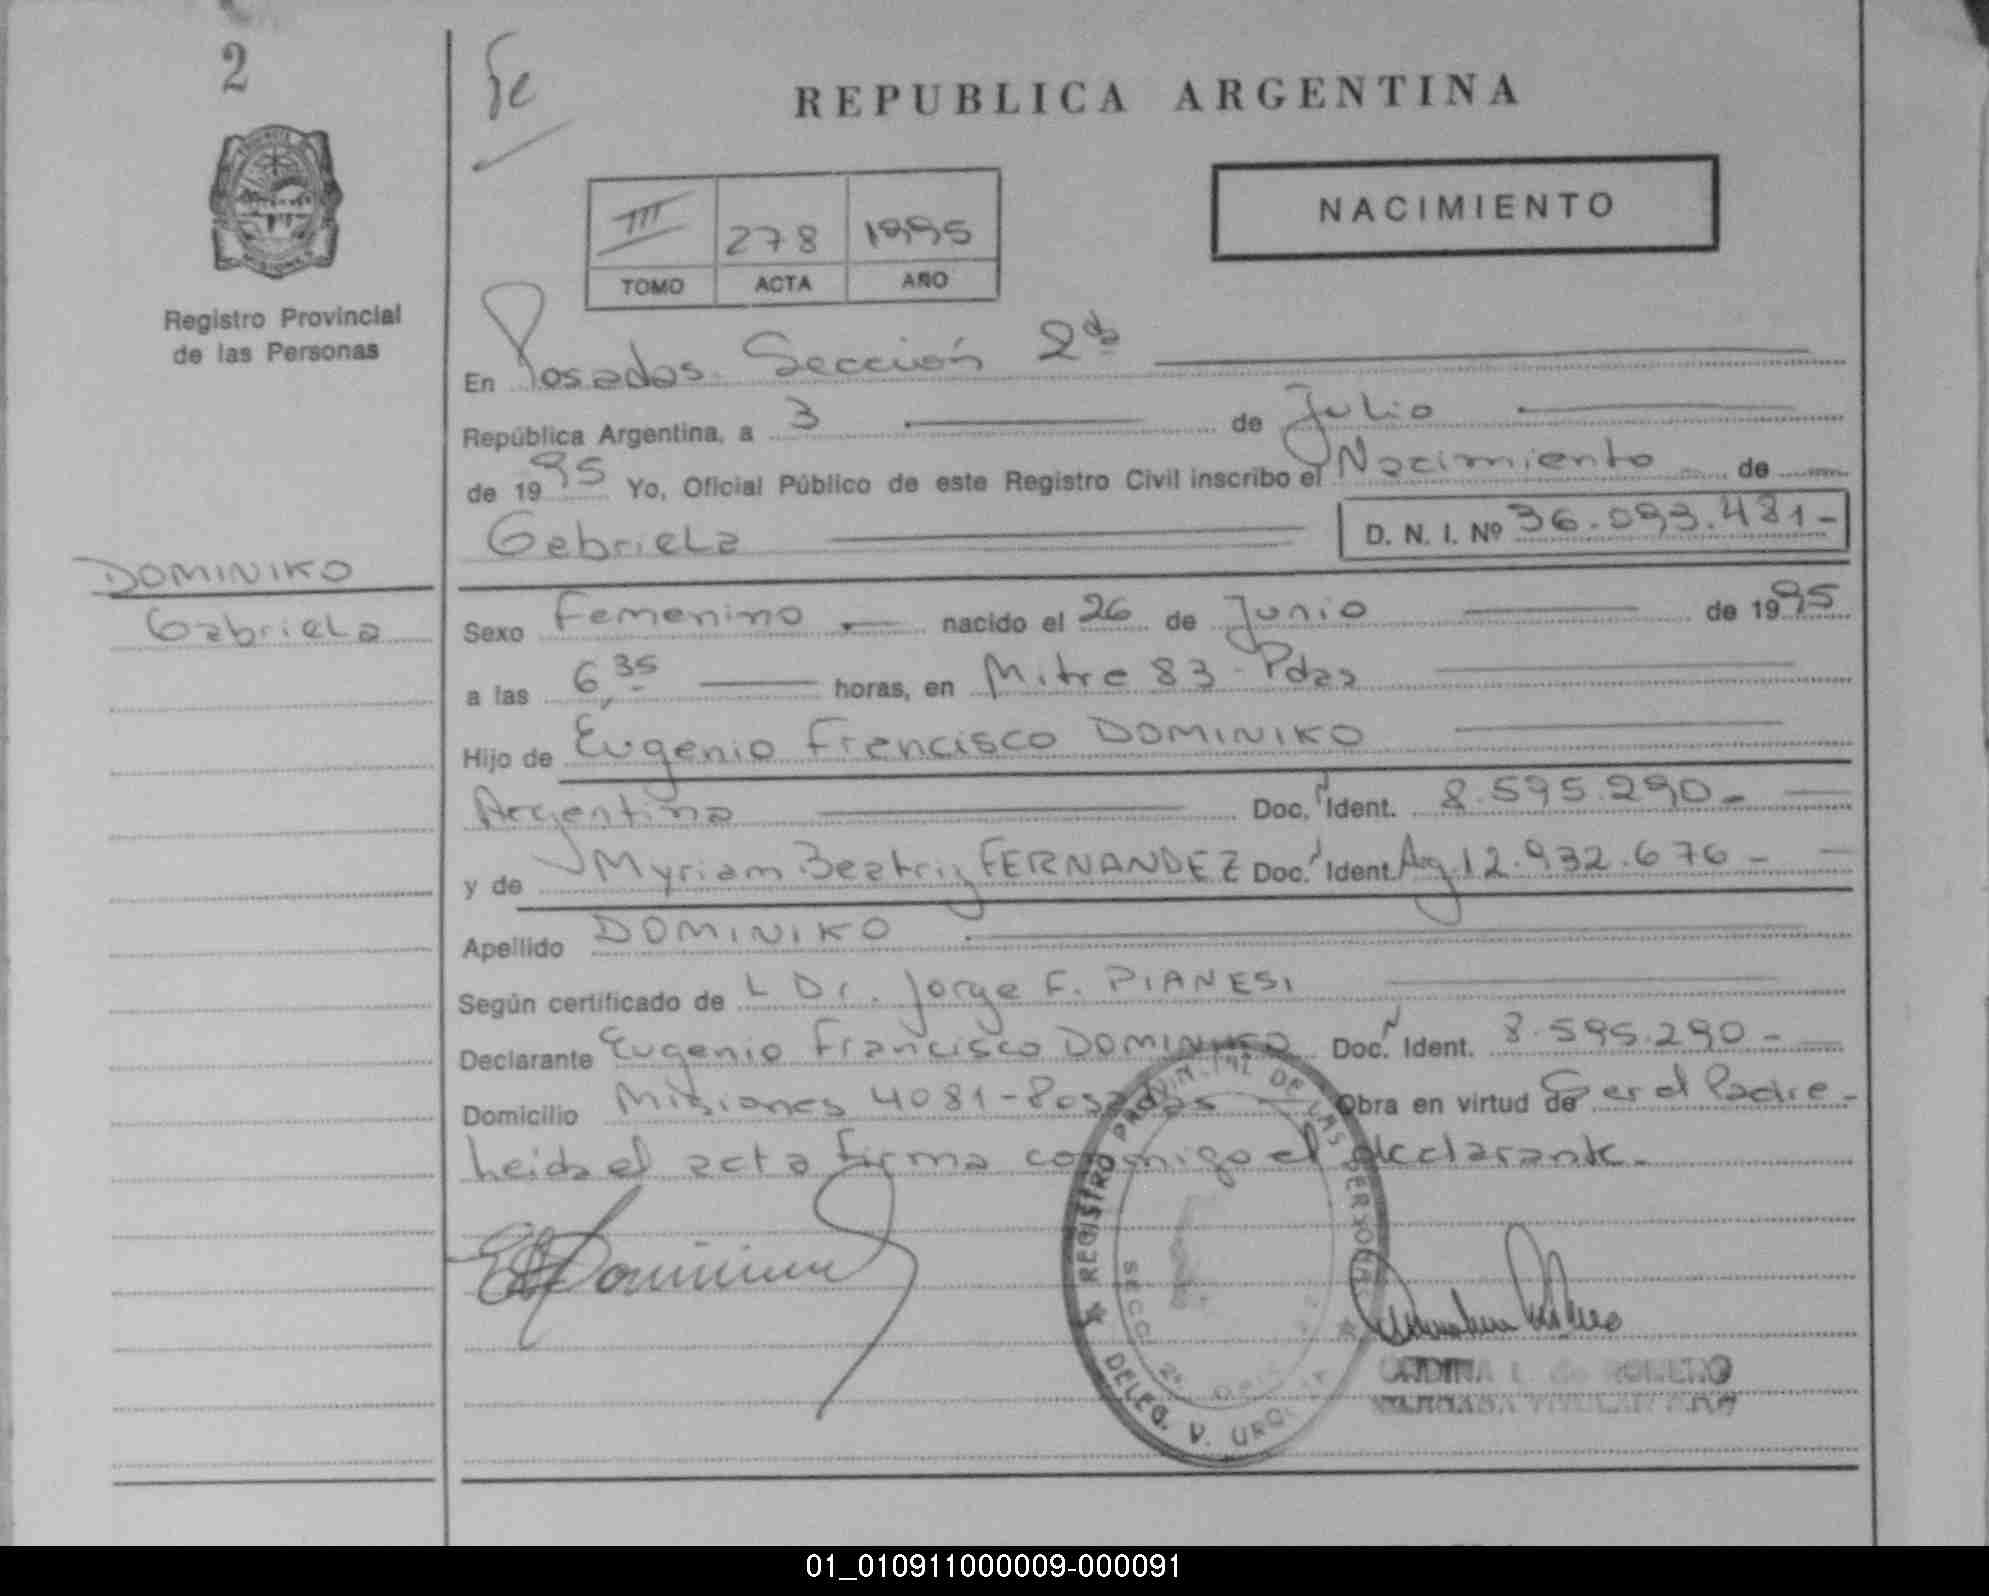 2
Se
REPUBLICA ARGENTINA
NACIMIENTO
III 278 1995
TOMO ACTA AÑO
Registro Provincial
de las Personas
En Posadas Sección 2da
República Argentina, a 3 de Julio
de 1995 Yo, Oficial Público de este Registro Civil inscribo el Nacimiento de
Gabriela D. N. I. Nº 36.093.481-
DOMINIKO
Gabriela
Sexo Femenino nacido el 26 de Junio de 1995
a las 6,35 horas, en Mitre 83 - Pdas
Hijo de Eugenio Francisco DOMINIKO
Argentina Doc. Ident. 8.595.290-
y de Myriam Beatriz FERNANDEZ Doc. Ident. Arg. 12.932.676-
Apellido DOMINIKO
Según certificado de L Dr. Jorge F. PIANESI
Declarante Eugenio Francisco DOMINIKO Doc. Ident. 8.595.290-
Domicilio Misiones 4081-Posadas Obra en virtud de Ser el Padre-
Leida el acta firma conmigo el declarante.
REGISTRO PROVINCIAL DE LAS PERSONAS
DELEG. V. URQ
SECC. 2º
L. de ROMERO
01_010911000009-000091